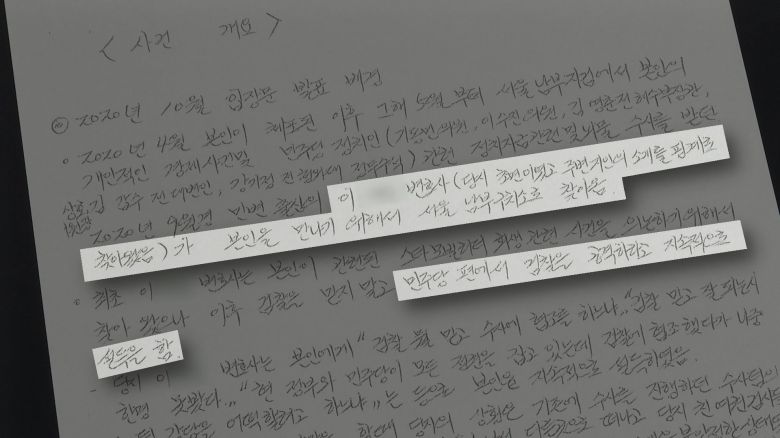 < 사건 개요 >
◎ 2020년 10월 입장문 발표 배경
◦ 2020년 4월 본인이 체포된 이후 그해 5월부터 서울남부지검에서 본인의
개인적인 경제사건및 민주당 정치인(기동민의원, 이수진의원, 김영춘전해수부장관,
김갑수 전 대변인, 강기정 전 관련 정치자금관련 및 뇌물 수사를 받던
2020년 9월경 민변 출신의 이 변호사(당시 초면이었고 주변지인의 소개를 핑계로
찾아왔음)가 본인을 만나기 위해서 서울 남부구치소로 찾아옴.
◦ 최초 이 변호사는 본인이 관련된 스타모빌리티 회생 관련 사건을 의논하기 위해서
찾아 왔으나 이후 검찰을 믿지 말고 민주당 편에서 검찰을 공격하라고 지속적으로
설득을 함.
- 당시 이 변호사는 본인에게 "검찰 뭘 믿고 수사에 협조를 하느냐," "검찰 믿고 잘 되는거
한명 못봤다.." "현 정부와 민주당이 모든 권력을 잡고 있는데 검찰에 협조했다가 나중
감당을 어떡할려고 하느냐" 는 등으로 본인을 지속적으로 설득하였음.
당시의 상황은 기존에 수사를 진행하던 수사팀이
다른곳으로 떠나고 당시 친여권검사